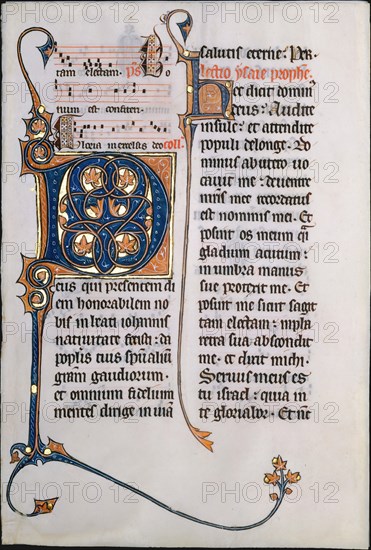 tam electam. ps Bo
num est confiteri.
Gloria in excelsis deo coll.
Deus qui presentem di
em honorabilem no
bis in beati iohannis
natiuitate fecisti: da
populis tuis sp̄ualiū
grām gaudiorum.
et omnium fidelium
mentes dirige in uiā
salutis eterne: Per
lectio ysaie prophē.
Hec dicit domin'
deus: Audite
insule: et attendite
populi de longe. Do
minus ab utero uo
cauit me: de uentre
matris mee recordatus
est nominis mei. Et
posuit os meum q̄
gladium acutum:
in umbra manus
sue protexit me. Et
posuit me sicut sagit
tam electam: in pha
retra sua abscondit
me. et dixit michi
Seruus meus es
tu israel: quia in
te gloriabor. Et nūc